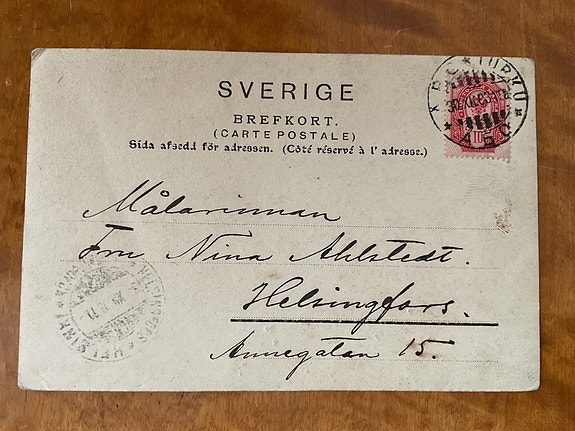 SVERIGE
BREFKORT.
(CARTE POSTALE)
Sida afsedd för adressen. (Côté réservé à l'adresse.)
TURKU
ÅBO
10
Målarinnan
Fru Nina Ahlstedt.
Helsingfors.
Annegatan 15.
HELSINGFORS
HELSINKI